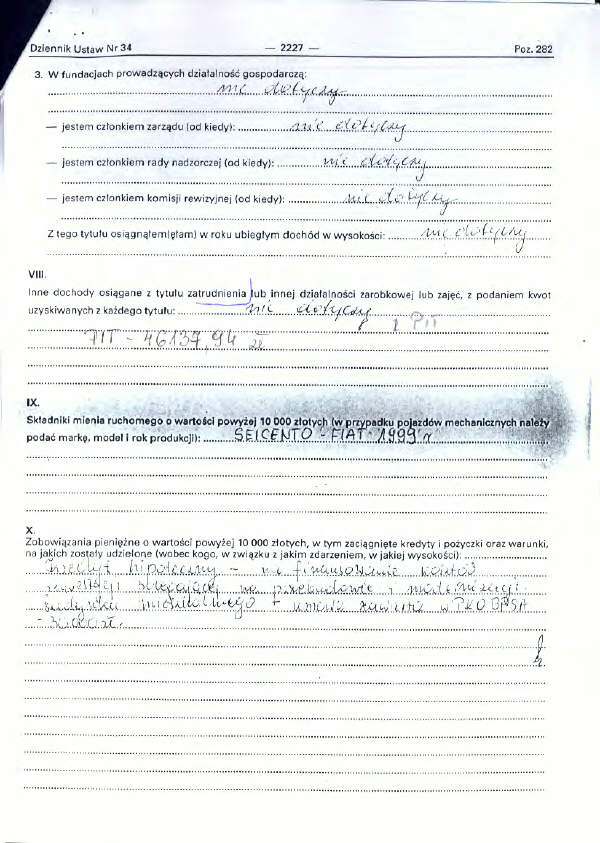 Dziennik Ustaw Nr 34 — 2227 — Poz. 282
3. W fundacjach prowadzących działalność gospodarczą:
nie dotyczy
— jestem członkiem zarządu (od kiedy): nie dotyczy
— jestem członkiem rady nadzorczej (od kiedy): nie dotyczy
— jestem członkiem komisji rewizyjnej (od kiedy): nie dotyczy
Z tego tytułu osiągnąłem(ęłam) w roku ubiegłym dochód w wysokości: nie dotyczy
VIII.
Inne dochody osiągane z tytułu zatrudnienia lub innej działalności zarobkowej lub zajęć, z podaniem kwot
uzyskiwanych z każdego tytułu: nie dotyczy
z PIT
PIT - 46137,94 zł
IX.
Składniki mienia ruchomego o wartości powyżej 10 000 złotych (w przypadku pojazdów mechanicznych należy
podać markę, model i rok produkcji): SEICENTO - FIAT 1999 r
X.
Zobowiązania pieniężne o wartości powyżej 10 000 złotych, w tym zaciągnięte kredyty i pożyczki oraz warunki,
na jakich zostały udzielone (wobec kogo, w związku z jakim zdarzeniem, w jakiej wysokości):
kredyt hipoteczny - na finansowanie kosztów
inwestycji na przebudowie i modernizacji
budynku mieszkalnego + umowa zawarta w PKO BP SA